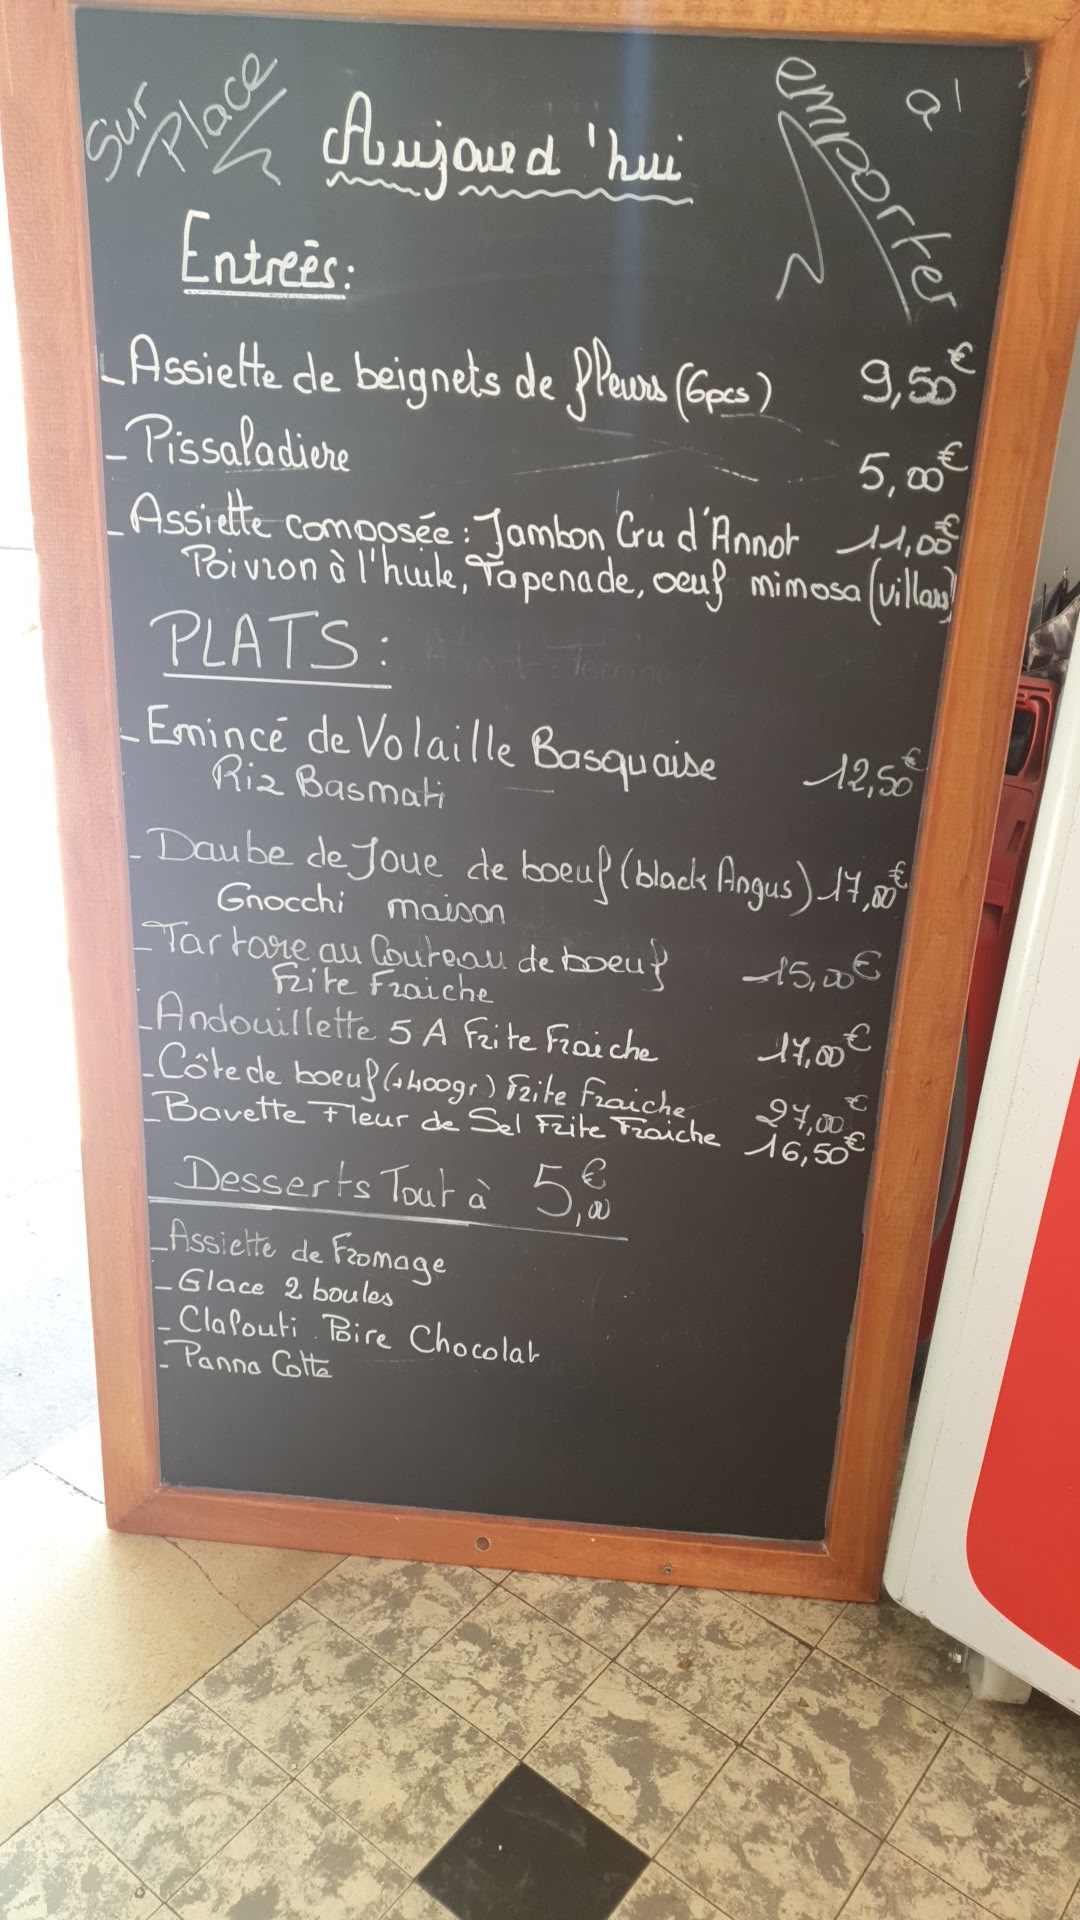 Sur Place
à emporter
Aujourd'hui
Entreés:
- Assiette de beignets de fleurs (6pcs) 9,50€
- Pissaladiere 5,00€
- Assiette composée : Jambon Cru d'Annot 11,00€
Poivron à l'huile, Tapenade, oeuf mimosa
PLATS :
- Emincé de Volaille Basquaise 12,50€
Riz Basmati
- Daube de Joue de boeuf (black Angus) 17,00€
Gnocchi maison
- Tartare au Couteau de boeuf 15,00€
Frite Fraiche
- Andouillette 5 A Frite Fraiche 17,00€
- Côte de boeuf (+400gr) Frite Fraiche 27,00€
- Bavette Fleur de Sel Frite Fraiche 16,50€
Desserts Tout à 5,00€
- Assiette de Fromage
- Glace 2 boules
- Clafouti Poire Chocolat
- Panna Cotta